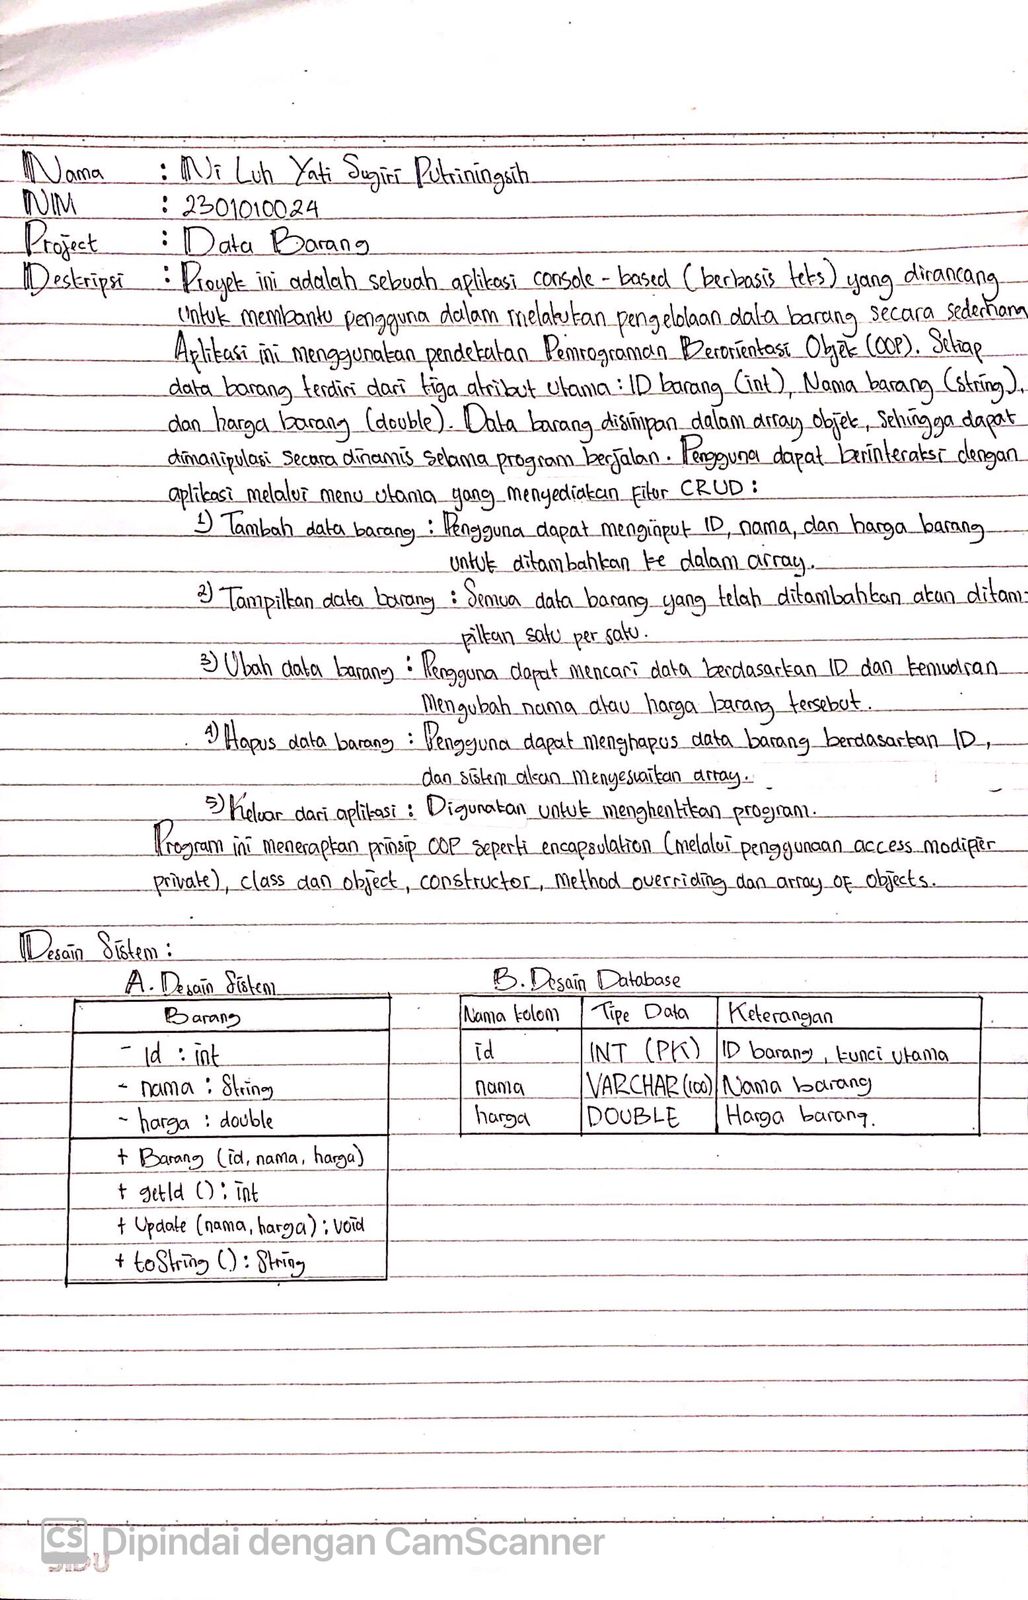 Nama : Ni Luh Yati Sugiri Putriningsih
NIM : 2301010024
Project : Data Barang
Deskripsi : Proyek ini adalah sebuah aplikasi console-based (berbasis teks) yang dirancang
untuk membantu pengguna dalam melakukan pengelolaan data barang secara sederhana
Aplikasi ini menggunakan pendekatan Pemrograman Berorientasi Objek (OOP). Setiap
data barang terdiri dari tiga atribut utama : ID barang (int), Nama barang (string),
dan harga barang (double). Data barang disimpan dalam array objek, sehingga dapat
dimanipulasi secara dinamis selama program berjalan. Pengguna dapat berinteraksi dengan
aplikasi melalui menu utama yang menyediakan fitur CRUD :
1) Tambah data barang : Pengguna dapat menginput ID, nama, dan harga barang
untuk ditambahkan ke dalam array.
2) Tampilkan data barang : Semua data barang yang telah ditambahkan akan ditam-
pilkan satu per satu.
3) Ubah data barang : Pengguna dapat mencari data berdasarkan ID dan kemudian
mengubah nama atau harga barang tersebut.
4) Hapus data barang : Pengguna dapat menghapus data barang berdasarkan ID,
dan sistem akan menyesuaikan array.
5) Keluar dari aplikasi : Digunakan untuk menghentikan program.
Program ini menerapkan prinsip OOP seperti encapsulation (melalui penggunaan access modifier
private), class dan object, constructor, method overriding dan array of objects.
Desain Sistem :
A. Desain Sistem
Barang
- id : int
- nama : String
- harga : double
+ Barang (id, nama, harga)
+ getId () : int
+ Update (nama, harga) : void
+ toString () : String
B. Desain Database
Nama kolom Tipe Data Keterangan
id INT (PK) ID barang, kunci utama
nama VARCHAR (100) Nama barang
harga DOUBLE Harga barang.
CS Dipindai dengan CamScanner
SIDU